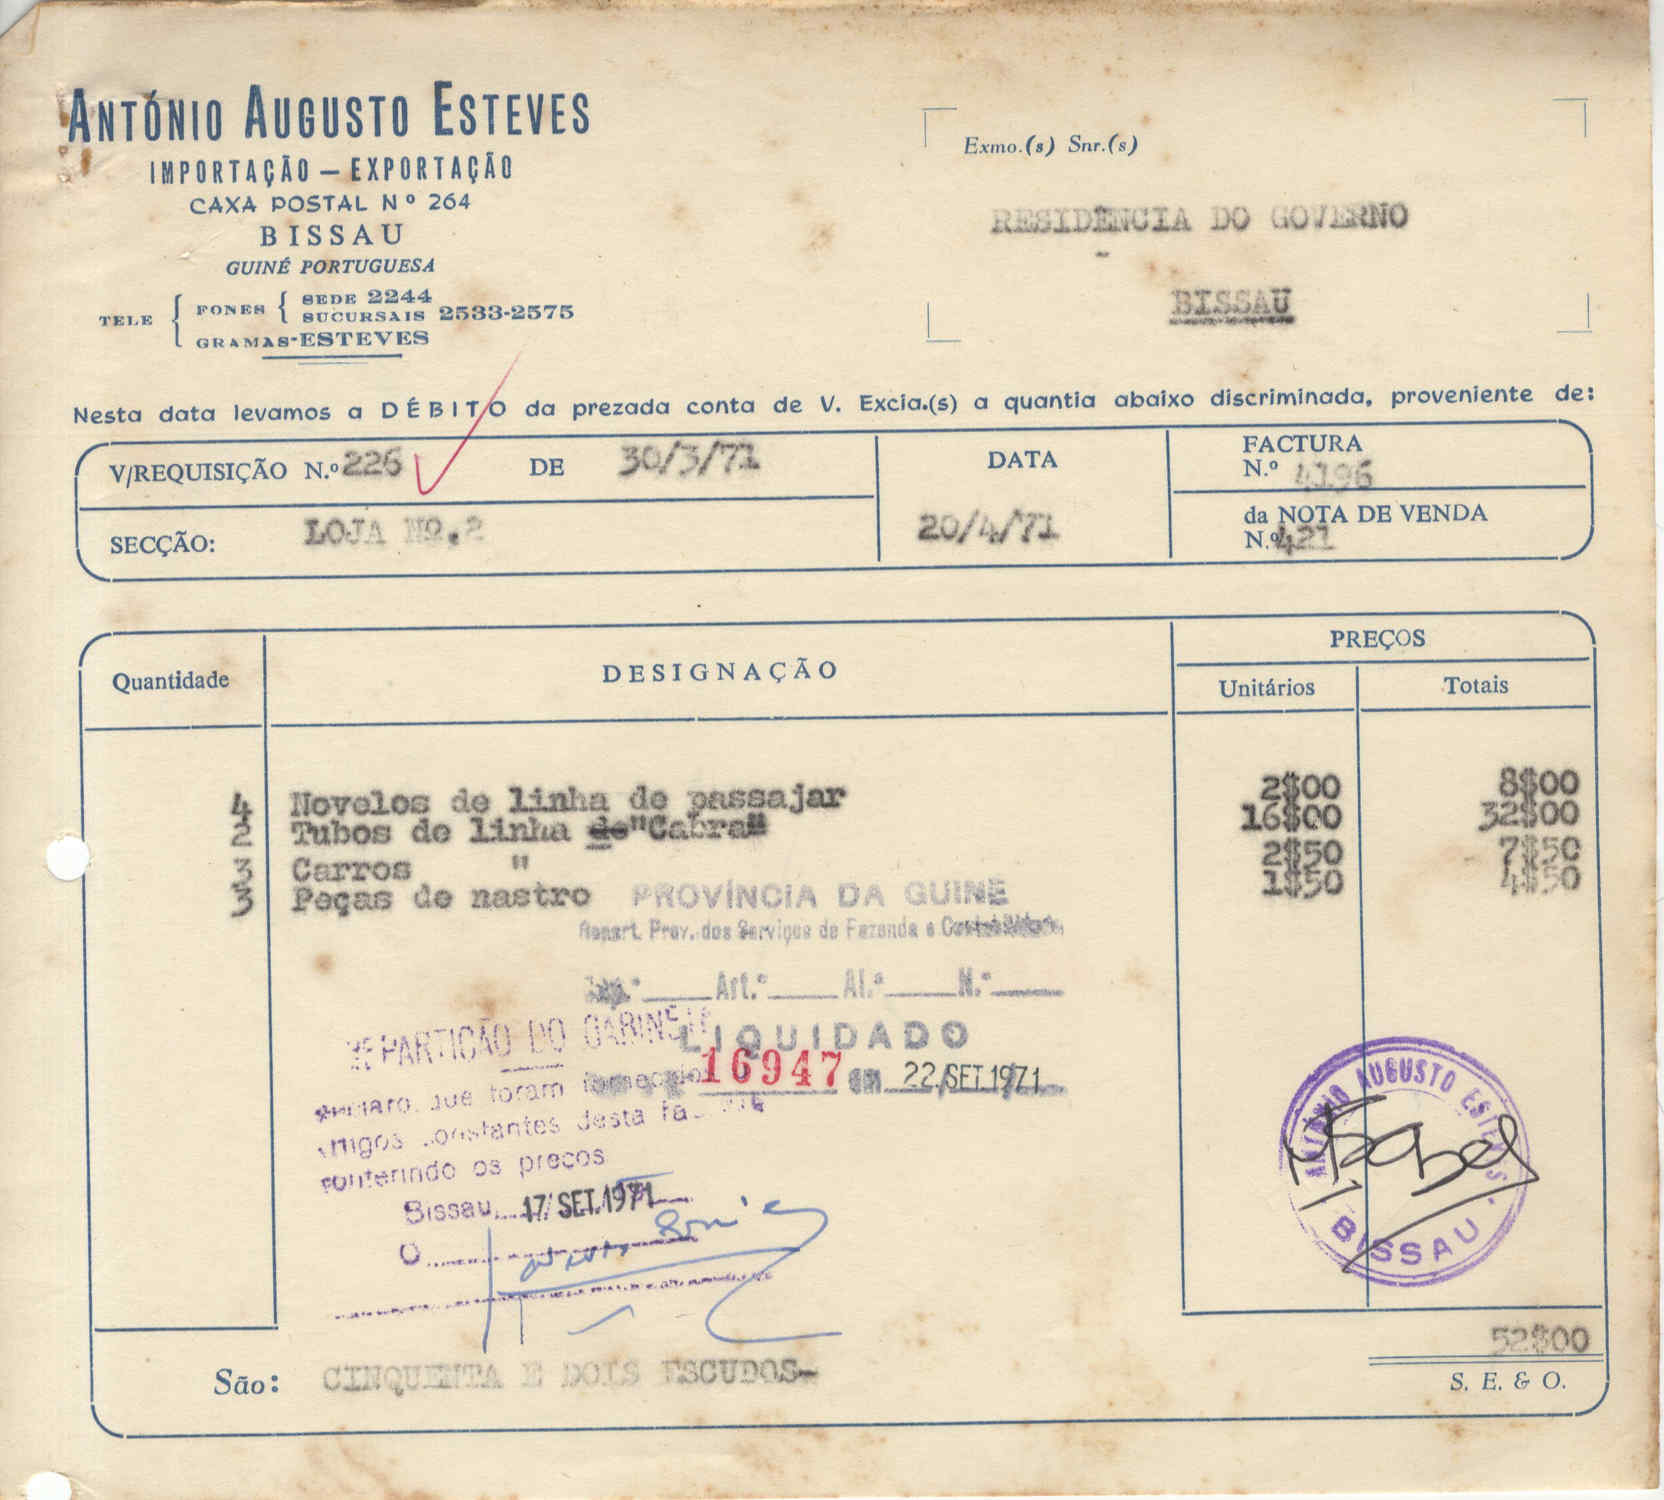 ANTÓNIO AUGUSTO ESTEVES
IMPORTAÇÃO — EXPORTAÇÃO
CAXA POSTAL Nº 264
BISSAU
GUINÉ PORTUGUESA
TELE { FONES { SEDE 2244
SUCURSAIS 2533-2575
GRAMAS-ESTEVES
Exmo.(s) Snr.(s)
RESIDENCIA DO GOVERNO
BISSAU
Nesta data levamos a DÉBITO da prezada conta de V. Excia.(s) a quantia abaixo discriminada, proveniente de:
V/REQUISIÇÃO N.º 226 DE 30/3/71
SECÇÃO: LOJA Nº.2
DATA
20/4/71
FACTURA
N.º 4196
da NOTA DE VENDA
N.º 421
Quantidade DESIGNAÇÃO PREÇOS
Unitários Totais
4 Novelos de linha de passajar 2$00 8$00
2 Tubos de linha de "Cabra" 16$00 32$00
3 Carros " 2$50 7$50
3 Peças de nastro 1$50 4$50
PROVÍNCIA DA GUINÉ
Repart. Prov. dos Serviços de Fazenda e
Cap.º Art.º Al.ª N.º
LIQUIDADO
16947 em 22 SET. 1971
REPARTIÇÃO DO GABINETE
que foram
Artigos constantes desta
conferindo os preços
Bissau, 17 SET. 1971
O
ANTÓNIO AUGUSTO ESTEVES
BISSAU
52$00
São: CINQUENTA E DOIS ESCUDOS-
S. E. & O.